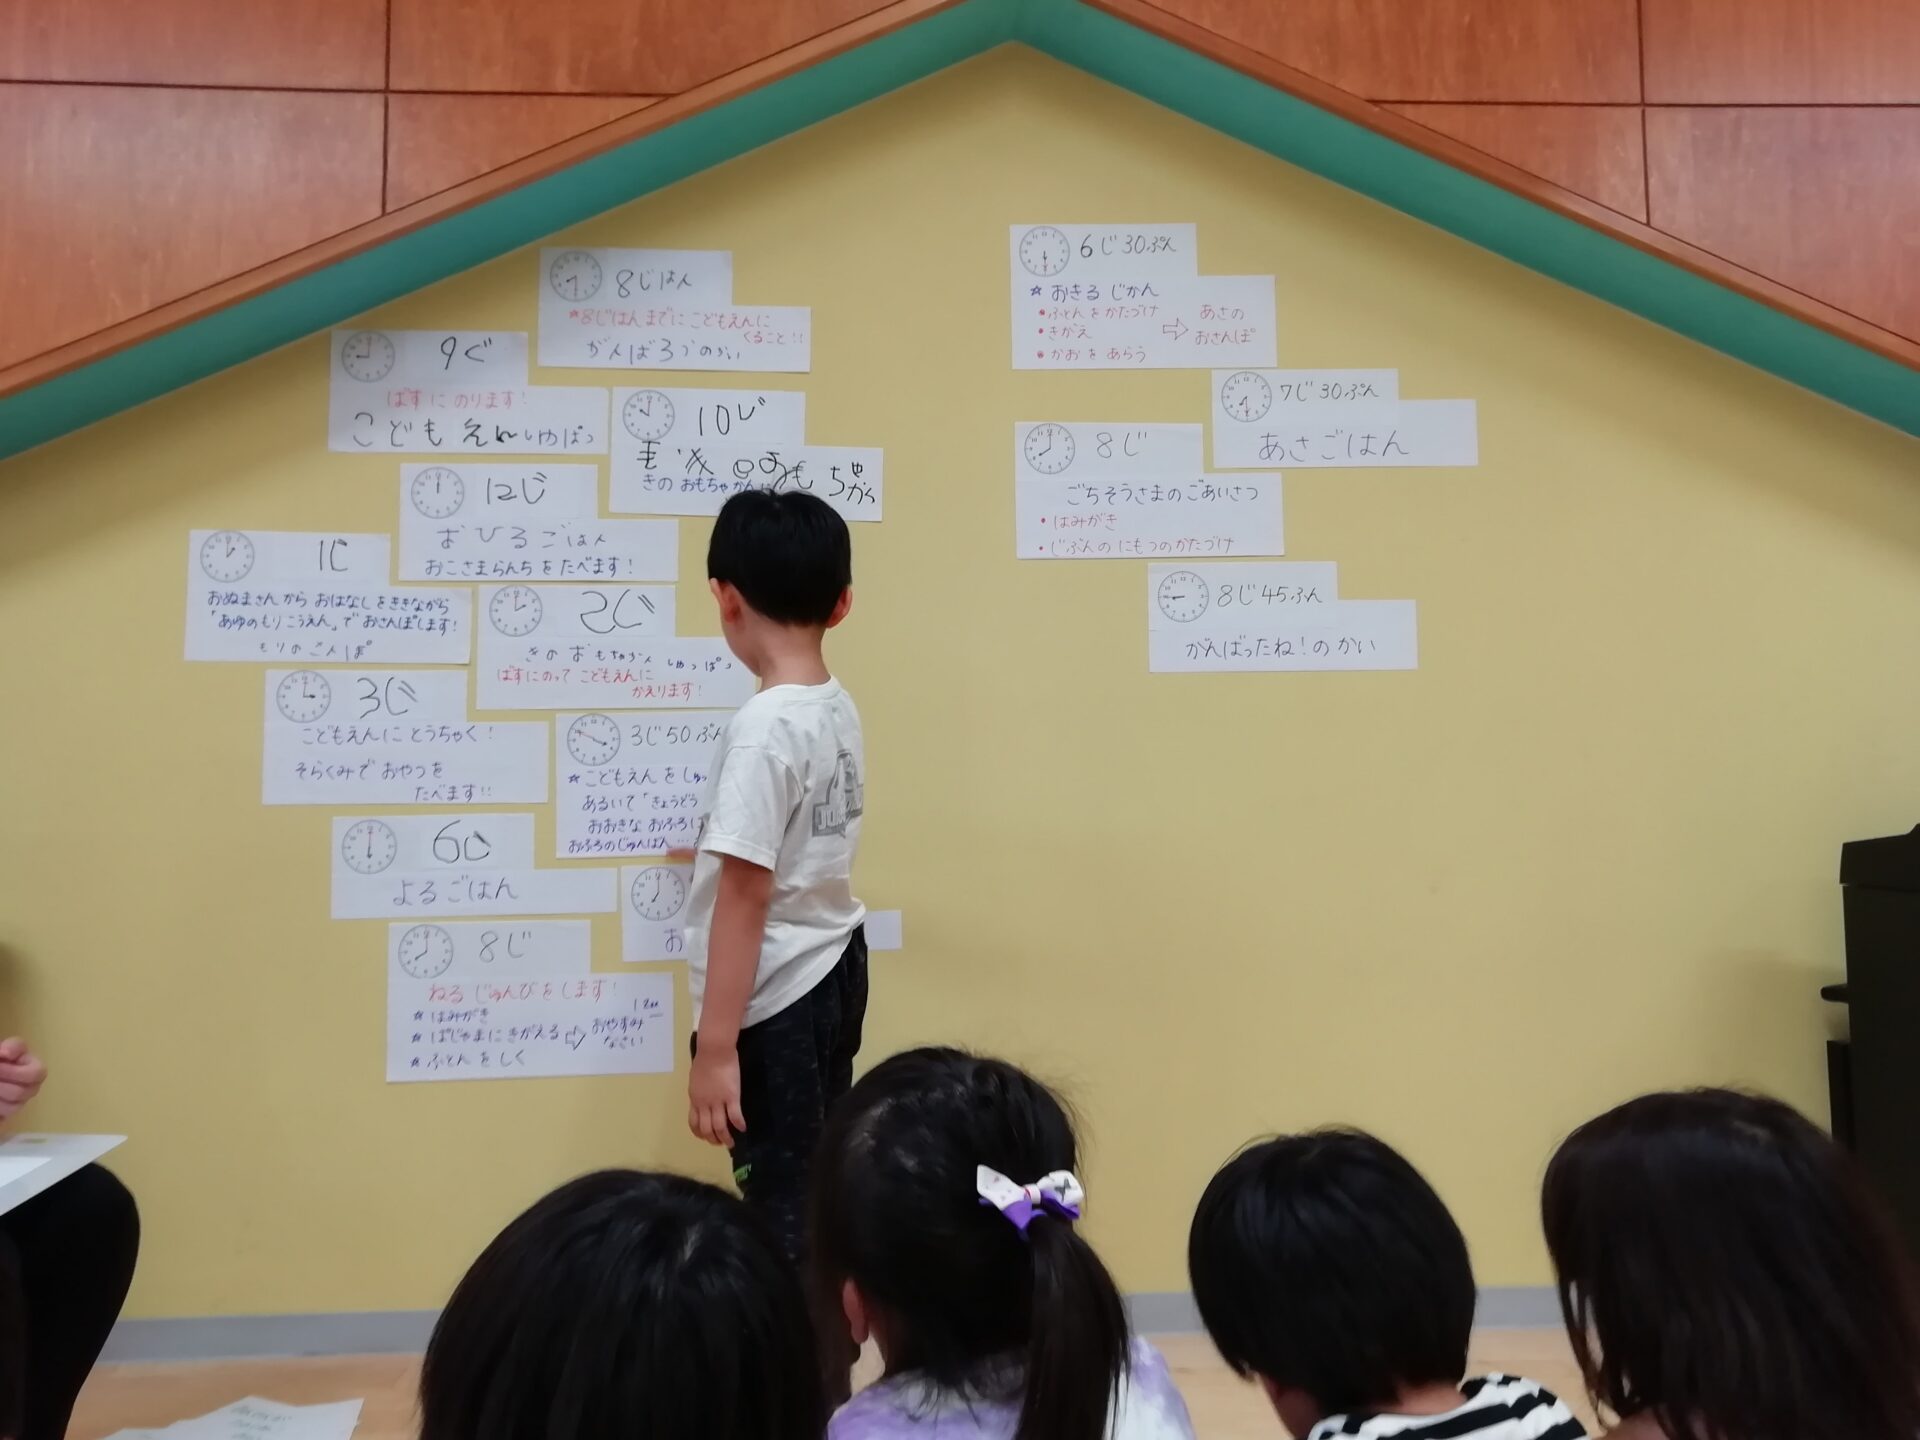 8じはん
*8じはんまでに こどもえんに
くること!!
がんばろうのかい
9じ
ばすに のります!
こどもえん しゅぱつ
10じ
きの おもちゃ
12じ
おひるごはん
おこさまらんちをたべます!
1じ
おぬまさんから おはなしをききながら
「あゆのもりこうえん」で おさんぽします!
もりのさんぽ
2じ
きの おもちゃかん しゅっぱつ
ばすにのって こどもえんに
かえります!
3じ
こどもえんに とうちゃく!
そらくみで おやつを
たべます!!
3じ50ぷん
☆こどもえん をしゅっ
あるいて「きょうどう
おおきな おふろに
おふろのじゅんばん…
6じ
よるごはん
お
8じ
ねる じゅんびをします!
☆ はみがき
☆ ぱじゃまに きがえる ⇨ おやすみ
なさい
☆ ふとん をしく
6じ30ぷん
☆ おきる じかん
•ふとん をかたづけ
•きがえ
•かお を あらう
⇨ あさの
おさんぽ
7じ30ぷん
あさごはん
8じ
ごちそうさまのごあいさつ
•はみがき
•じぶんの にもつのかたづけ
8じ45ふん
がんばったね!のかい